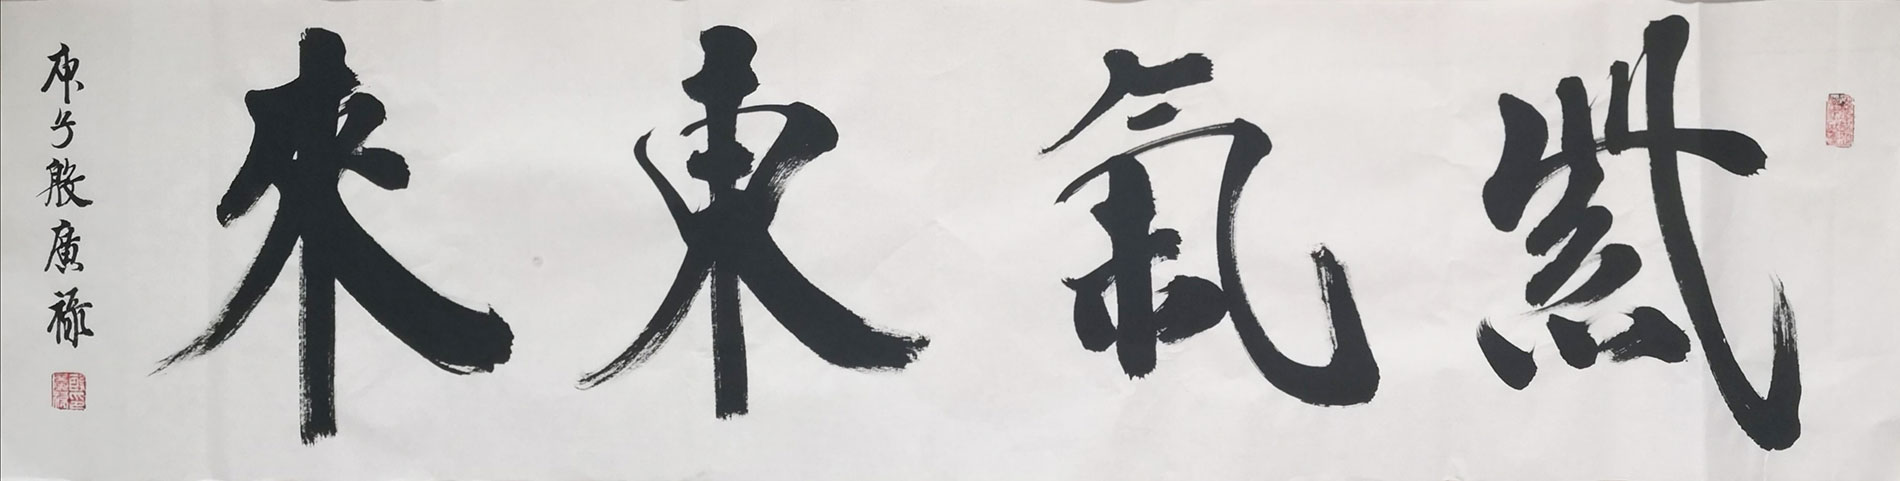 紫氣東來
庚子殷廣祿